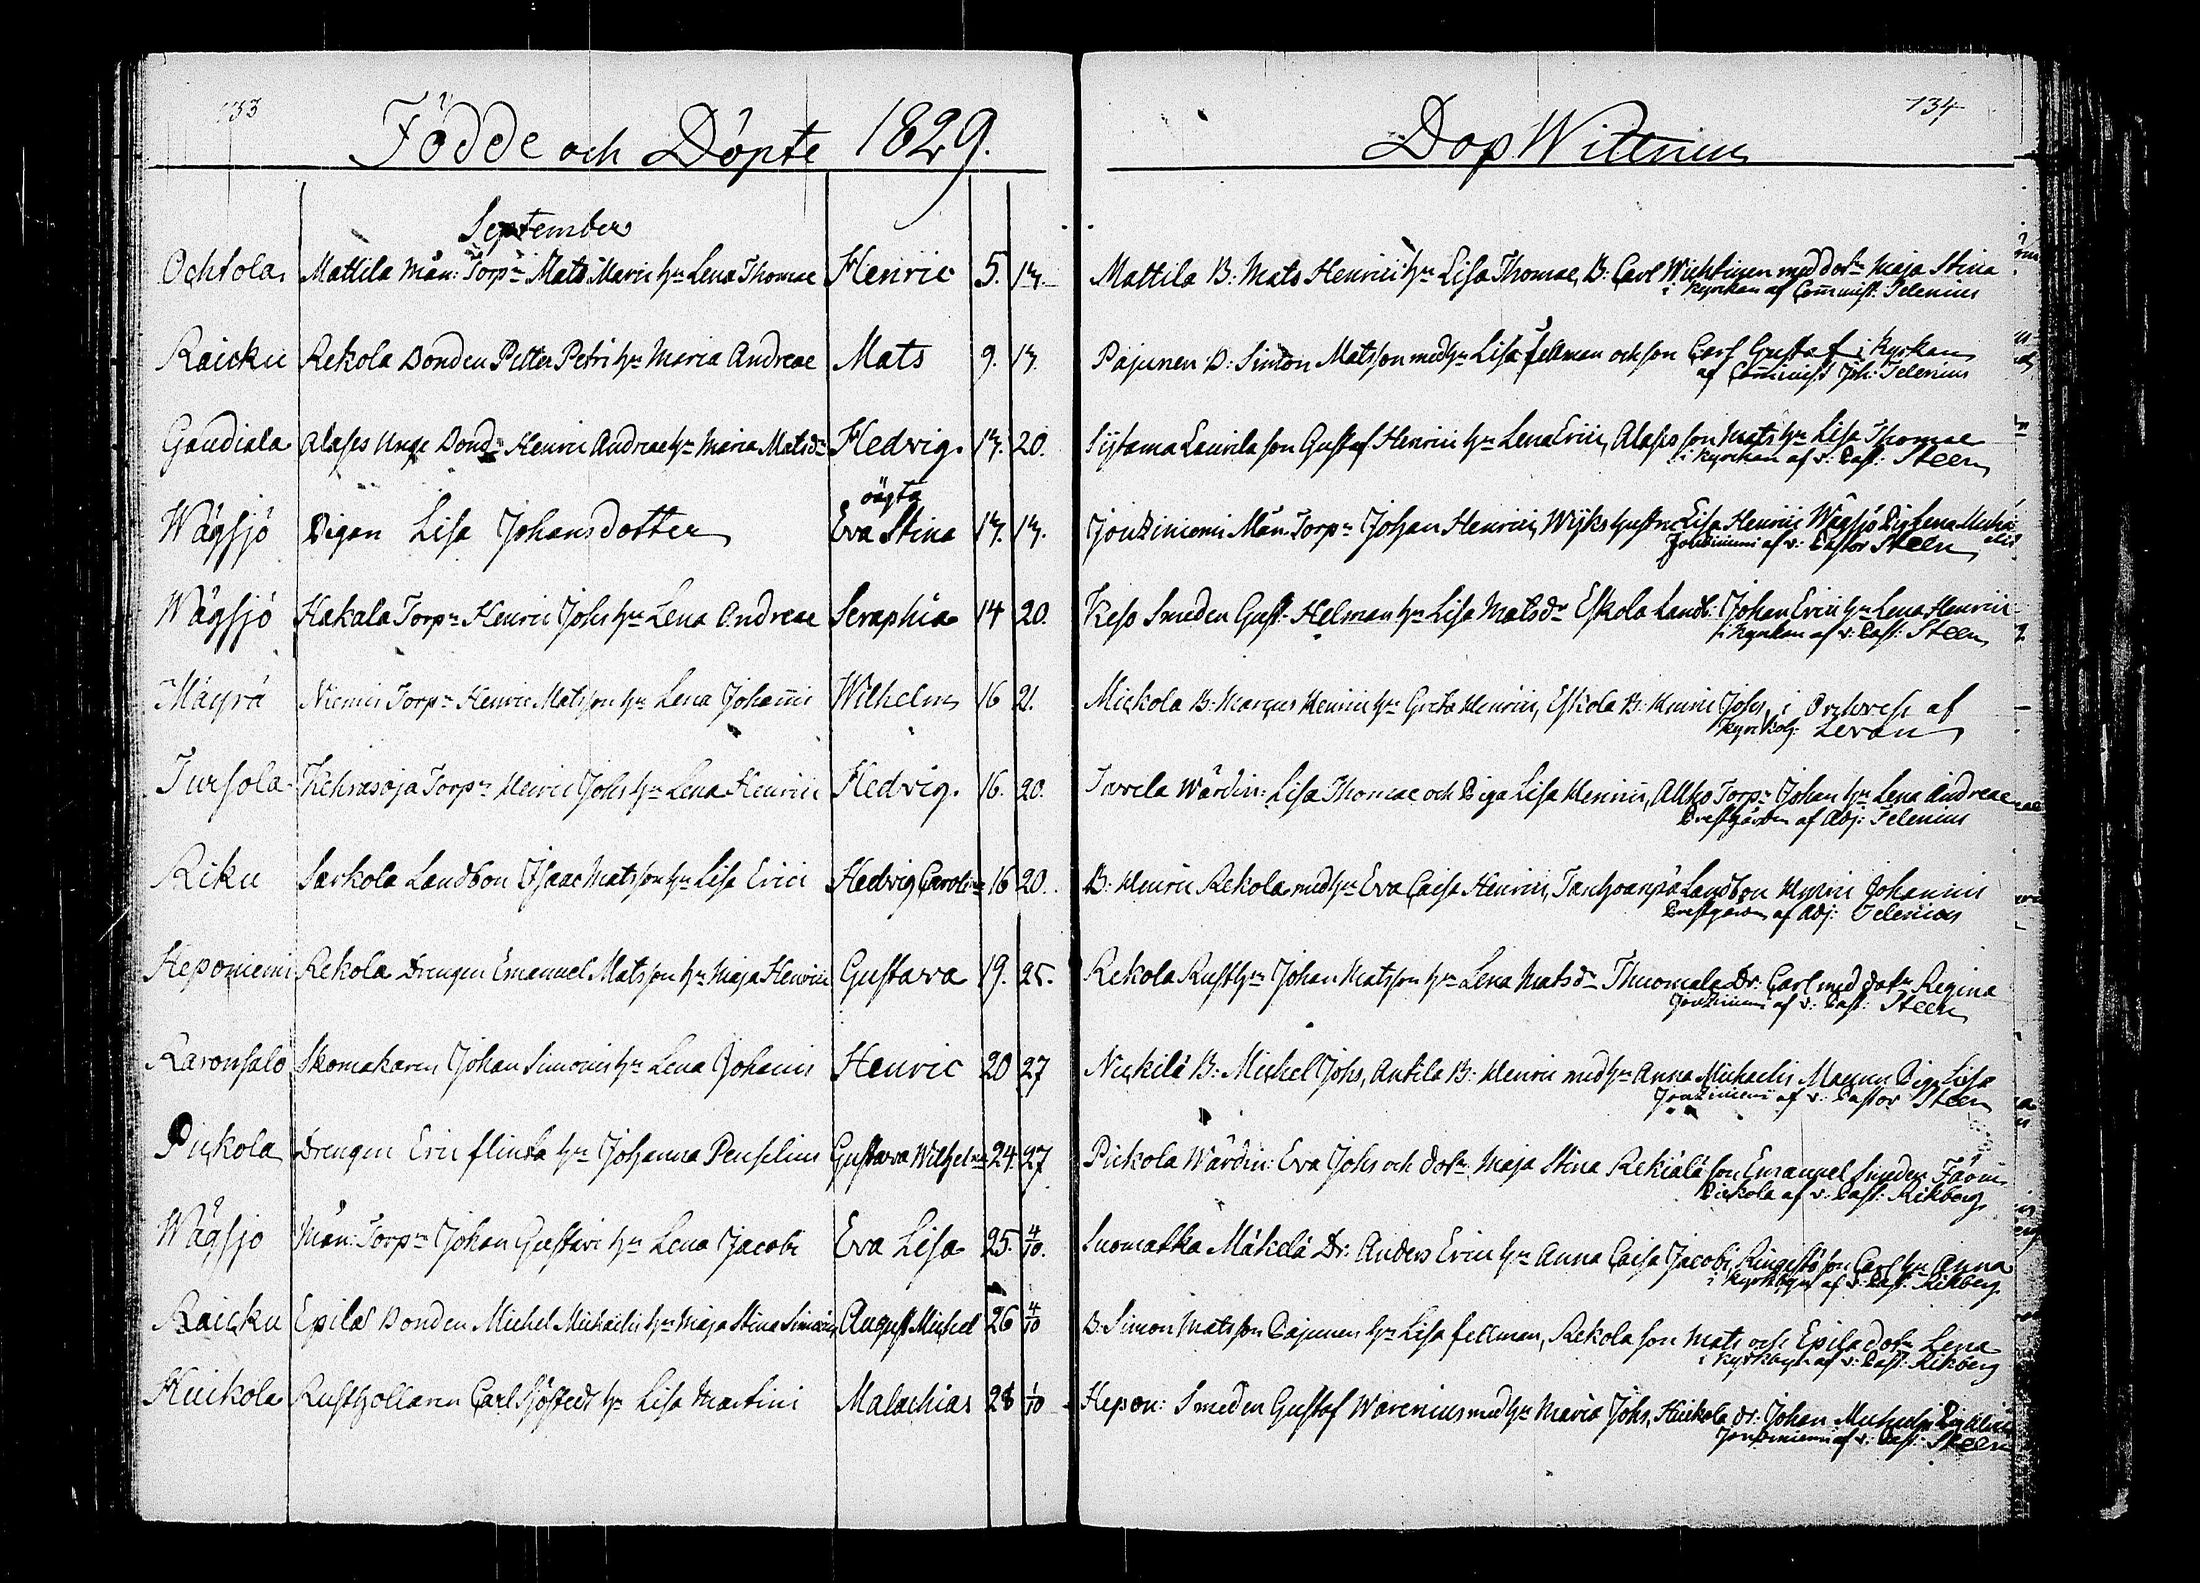 133
Födde och Döpte 1829.
September
Ochtola Mattila Mån: Torp:n Mats Marci h:u Lena Thomae Henric 5. 13.
Raicku Rekola Bonden Petter Petri h:u Maria Andreae Mats 9. 13.
Gaudiala Alasses Unge Bond:n Henric Andreae h:u Maria Matsd:r Hedvig. 13. 20.
oägta
Wågsjö Pigan Lisa Johansdotter Eva Stina 13. 13.
Wågsjö Hakala Torp:n Henric Johs h:u Lena Andreae Seraphia 14 20.
Mäyrä Niemis Torp:n Henric Matsson h:u Lena Johannis Wilhelm 16 21.
Tursola Kehrasoja Torp:n Henric Johs h:u Lena Henrici Hedvig. 16. 20.
Riku Sarkola Landbon Isaac Matsson h:u Lisa Erici Hedvig Carolina 16 20.
Heponiemi Rekola Drengen Emanuel Matsson h:u Maja Henrici Gustava 19. 25.
Karonsalo Skomakaren Johan Simonis h:u Lena Johannis Henric 20 27
Pickola Drengen Eric flinta h:u Johanna Penselius Gustava Wilhelm 24 27
Wågsjö Mån: Torp:n Johan Gustavi h:u Lena Jacobi Eva Lisa 25. 4/10.
Raicku Epilas Bonden Michel Michaelis h:u Maja Stina Simonis August Michel 26 4/10
Huikola Rusthollaren Carl Sjöstedt h:u Lisa Martini Malachias 28 1/10
134
Dop Wittnen
Mattila B: Mats Henrici h:u Lisa Thomae, B: Carl Wichtinen med dot:r Maja Stina
i kyrkan af Comminist: Telenius
Pajunen B: Simon Matsson med h:u Lisa fellman och son Carl Gustaf i kyrkan
af Comminist Joh: Telenius
Sijtama Laurila son Gustaf Henrici h:u Lena Erici, Alasses son Mats h:u Lisa Thomae
i kyrckan af v: Past: Steen
Joutziniemi Mån: Torp:n Johan Henrici, Wijks hustru Lisa Henrici Wågsjö Pig Lena Micha
elis
Joutziniemi af v: Pastor Steen
Keso Smeden Gust: Helman h:u Lisa Matsd:r Eskola Landb: Johan Erici h:u Lena Henrici
i kyrkan af v: Past: Steen
Mickola B: Marcus Henrici h:u Greta Henrici, Eskola B: Henric Johs, i af
Levan
Tavela Wärdin: Lisa Thomae och Piga Lisa Henrici, Allko Torp:r Johan h:u Lena Andreae
Prestgården af Adj: Telenius
B: Henric Rekola med h:u Eva Caisa Henrici, Landbon Henric Johannis
Prestgården af Adj: Telenius
Rekola Rusth:n Johan Matsson h:u Lena Matsd:r Thuomala Dr: Carl med dot:r Regina
Joutziniemi af v: Past: Steen
Nickilä B: Michel Johs, Antila B: Henric med h:u Anna Michaelis Maunu Pig Lisa
Joutziniemi af v: Pastor Steen
Pickola Wärdin: Eva Johs och dot:r Maja Stina son Emanuel Smeden
Pickola af v: Past: Rikberg
Suomatka Mäkelä Dr: Anders Erici h:u Anna Caisa Jacobi, son Carl h:u Anna
i kyrkbyn af v: Past: Rikberg
B: Simon Matsson Pajunen h:u Lisa fellman, Rekola son Mats och Epila dot:r Lena
i kyrkbyn af v: Past: Rikberg
Hepon: Smeden Gustaf Warenius med h:u Maria Johs, Huikola dr: Johan Michaelis Pig
Joutziniemi af v: Past: Steen